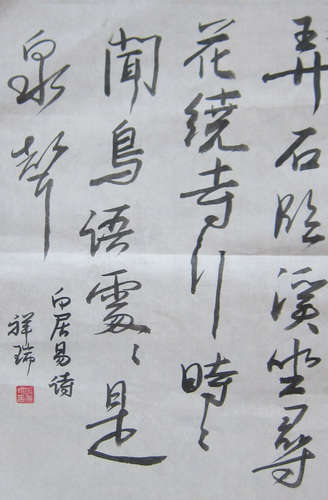 弄石臨溪坐尋
花繞寺行時〻
聞鳥語處〻是
泉聲
白居易詩
祥瑞